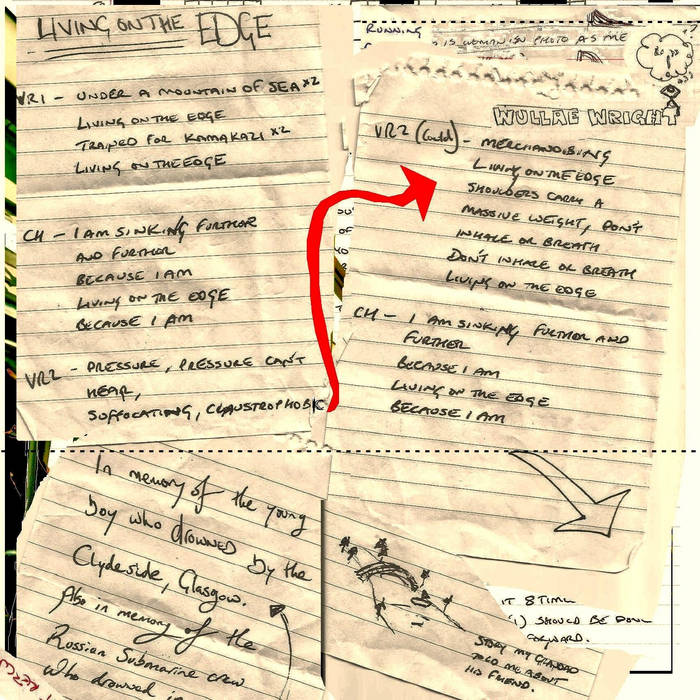 LIVING ON THE EDGE
VR1 - UNDER A MOUNTAIN OF SEA X2
LIVING ON THE EDGE
TRAINED FOR KAMAKAZI X2
LIVING ON THE EDGE
CH - I AM SINKING FURTHER
AND FURTHER
BECAUSE I AM
LIVING ON THE EDGE
BECAUSE I AM
VR2 - PRESSURE, PRESSURE CAN'T
HEAR,
SUFFOCATING, CLAUSTROPHOBIC
RUNNING
IS WOMAN ISN PHOTO AS ME
WULLAE WRIGHT
VR2 (Contd) - MERCHANDISING
LIVING ON THE EDGE
SHOULDERS CARRY A
MASSIVE WEIGHT, DON'T
INHALE OR BREATH
DON'T INHALE OR BREATH
LIVING ON THE EDGE
CH - I AM SINKING FURTHER AND
FURTHER
BECAUSE I AM
LIVING ON THE EDGE
BECAUSE I AM
In memory of the young
boy who drowned by the
Clydeside, Glasgow.
Also in memory of the
Russian Submarine crew
who drowned in
STORY MY GRANDAD
TOLD ME ABOUT
HIS FRIEND.
AT 8 TIML
SHOULD BE DONE
FORWARD.